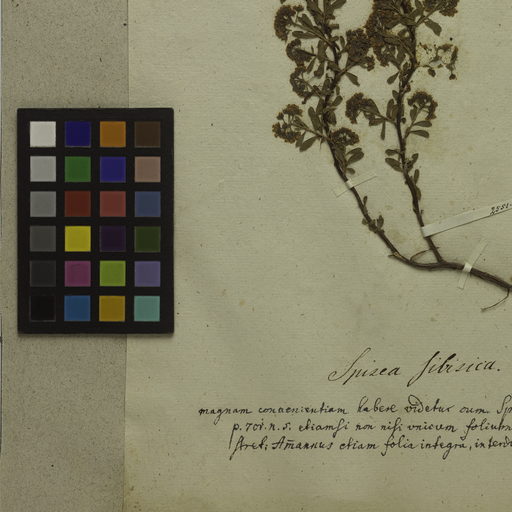 2551.
Spiraea sibirica.
magnam convenientiam habere videtur cum. Sp
p. 701. n. 5. etiamsi non nisi unicum folium
stret; Amannus etiam folia integra, interd